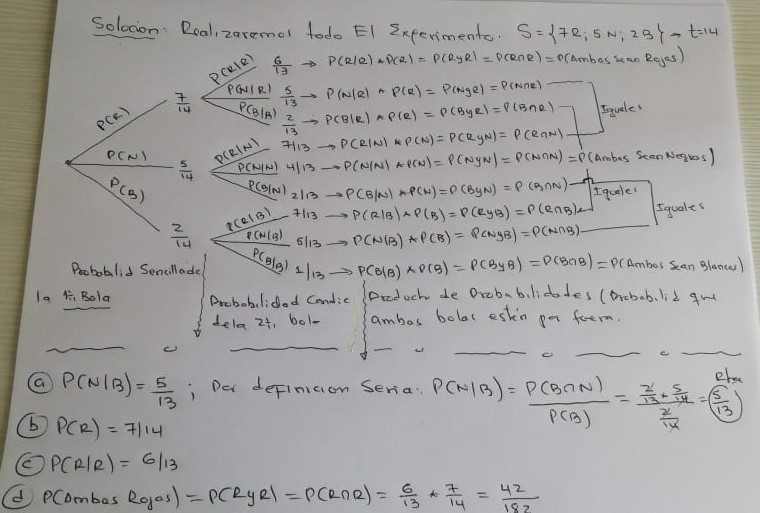 Solocion: Realizaremos todo El Experimento. S = {7R; 5N; 2B} → t=14
P(R|R) 6/13 → P(R|R) * P(R) = P(RyR) = P(R∩R) = P(Ambos Sean Rojas)
P(R) 7/14 P(N|R) 5/13 → P(N|R) * P(R) = P(NyR) = P(N∩R)
P(B|R) 2/13 → P(B|R) * P(R) = P(ByR) = P(B∩R) Iguales
P(R|N) 7/13 → P(R|N) * P(N) = P(RyN) = P(R∩N)
P(N) 5/14 P(N|N) 4/13 → P(N|N) * P(N) = P(NyN) = P(N∩N) = P(Ambas Sean Negras)
P(B|N) 2/13 → P(B|N) * P(N) = P(ByN) = P(B∩N) Iguales
P(B) 2/14 P(R|B) 7/13 → P(R|B) * P(B) = P(RyB) = P(R∩B) Iguales
P(N|B) 5/13 → P(N|B) * P(B) = P(NyB) = P(N∩B)
P(B|B) 1/13 → P(B|B) * P(B) = P(ByB) = P(B∩B) = P(Ambas Sean Blancas)
Probabilid Sencilla de
la 1ti. Bola
Probabilidad Condic
dela 2ti. bola
Producto de Probabilidades (Probabilid que
ambas bolas estén por fuera.
(a) P(N|B) = 5/13 ; Por definicion Seria: P(N|B) = P(B∩N)/P(B) = (2/13 * 5/14)/(2/14) = 5/13 Rta
(b) P(R) = 7/14
(c) P(R|R) = 6/13
(d) P(Ambas Rojas) = P(RyR) = P(R∩R) = 6/13 * 7/14 = 42/182